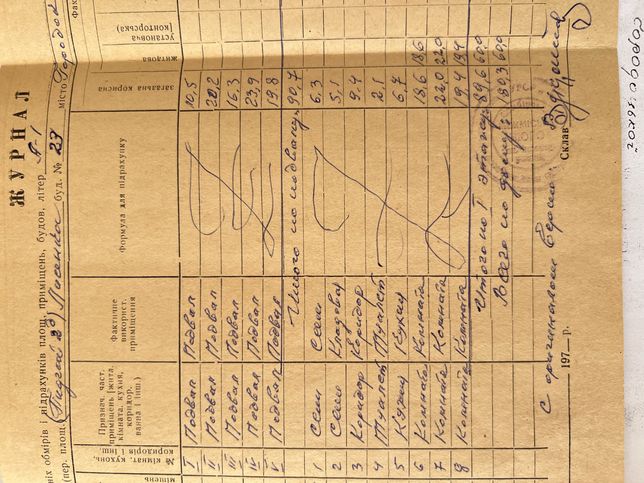 ЖУРНАЛ
ніх обмірів і підрахунків площ, приміщень, будов, літер А-1
(пер. площ) буд. № 23 місто Городок
міщень
№ кімнат, кухонь, коридорів і інш.
Признач. част. приміщень (жита. кімната, кухня, коридор, ванна і інш.)
Фактичне використ. приміщення
Формула для підрахунку
загальна корисна
житова
установча (конторська)
I Подвал Подвал 10,5
II Подвал Подвал 20,2
III Подвал Подвал 16,3
IV Подвал Подвал 23,9
V Подвал Подвал 19.8
Итого по подвалу: 90,7
1 Сени Сени 6.3
2 Сени Кладовая 5,1
3 Коридор Коридор 9.4
4 Туалет Туалет 2,1
5 Кухня Кухня 6.7
6 Комната Комната 18,6 18,6
7 Комната Комната 22,0 22,0
8 Комната Комната 19,4 19,4
Итого по I этажу: 89,6 60,0
Всего по дому: 180,3 60,0
197 р.
Склав
С оригиналом верно: